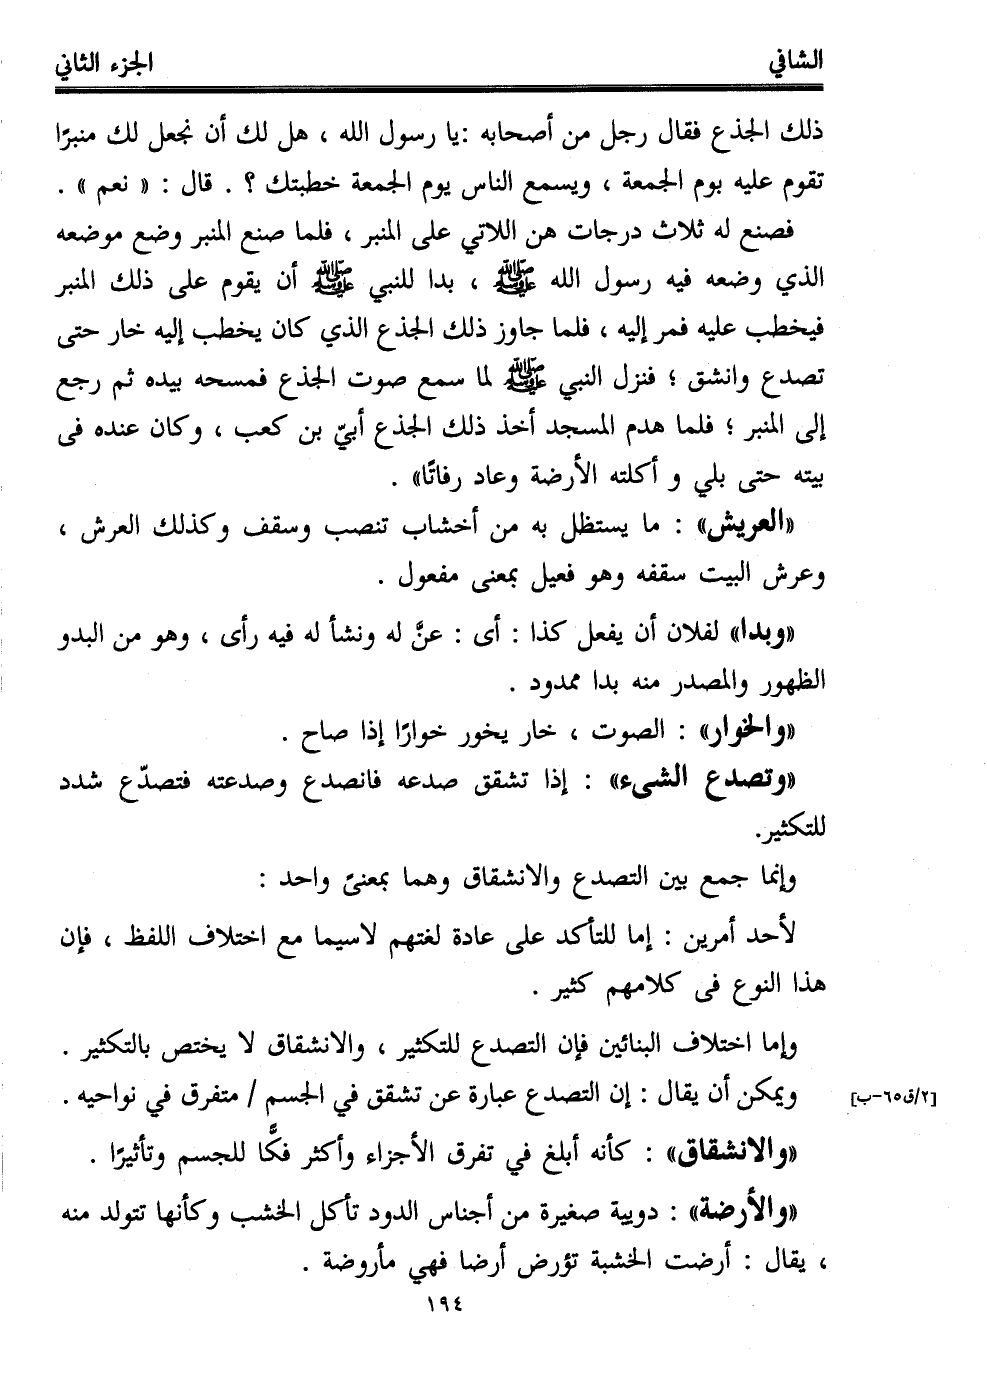 الشافي
الجزء الثاني
ذلك الجذع فقال رجل من أصحابه :يا رسول الله ، هل لك أن نجعل لك منبرًا
تقوم عليه بوم الجمعة ، ويسمع الناس يوم الجمعة خطبتك ؟ . قال : « نعم » .
فصنع له ثلاث درجات هن اللاتي على المنبر ، فلما صنع المنبر وضع موضعه
الذي وضعه فيه رسول الله ﷺ ، بدا للنبي ﷺ أن يقوم على ذلك المنبر
فيخطب عليه فمر إليه ، فلما جاوز ذلك الجذع الذي كان يخطب إليه خار حتى
تصدع وانشق ؛ فنزل النبي ﷺ لما سمع صوت الجذع فمسحه بيده ثم رجع
إلى المنبر ؛ فلما هدم المسجد أخذ ذلك الجذع أبيّ بن كعب ، وكان عنده فى
بيته حتى بلي و أكلته الأرضة وعاد رفاتًا» .
«العريش» : ما يستظل به من أخشاب تنصب وسقف وكذلك العرش ،
وعرش البيت سقفه وهو فعيل بمعنى مفعول .
«وبدا» لفلان أن يفعل كذا : أى : عنَّ له ونشأ له فيه رأى ، وهو من البدو
الظهور والمصدر منه بدا ممدود .
«والخوار» : الصوت ، خار يخور خوارًا إذا صاح .
«وتصدع الشىء» : إذا تشقق صدعه فانصدع وصدعته فتصدّع شدد
للتكثير.
وإنما جمع بين التصدع والانشقاق وهما بمعنىً واحد :
لأحد أمرين : إما للتأكد على عادة لغتهم لاسيما مع اختلاف اللفظ ، فإن
هذا النوع فى كلامهم كثير .
وإما اختلاف البنائين فإن التصدع للتكثير ، والانشقاق لا يختص بالتكثير .
ويمكن أن يقال : إن التصدع عبارة عن تشقق في الجسم / متفرق في نواحيه .
[٢/ق٦٥-ب]
«والانشقاق» : كأنه أبلغ في تفرق الأجزاء وأكثر فكًّا للجسم وتأثيرًا .
«والأرضة» : دويبة صغيرة من أجناس الدود تأكل الخشب وكأنها تتولد منه
، يقال : أرضت الخشبة تؤرض أرضا فهي مأروضة .
١٩٤